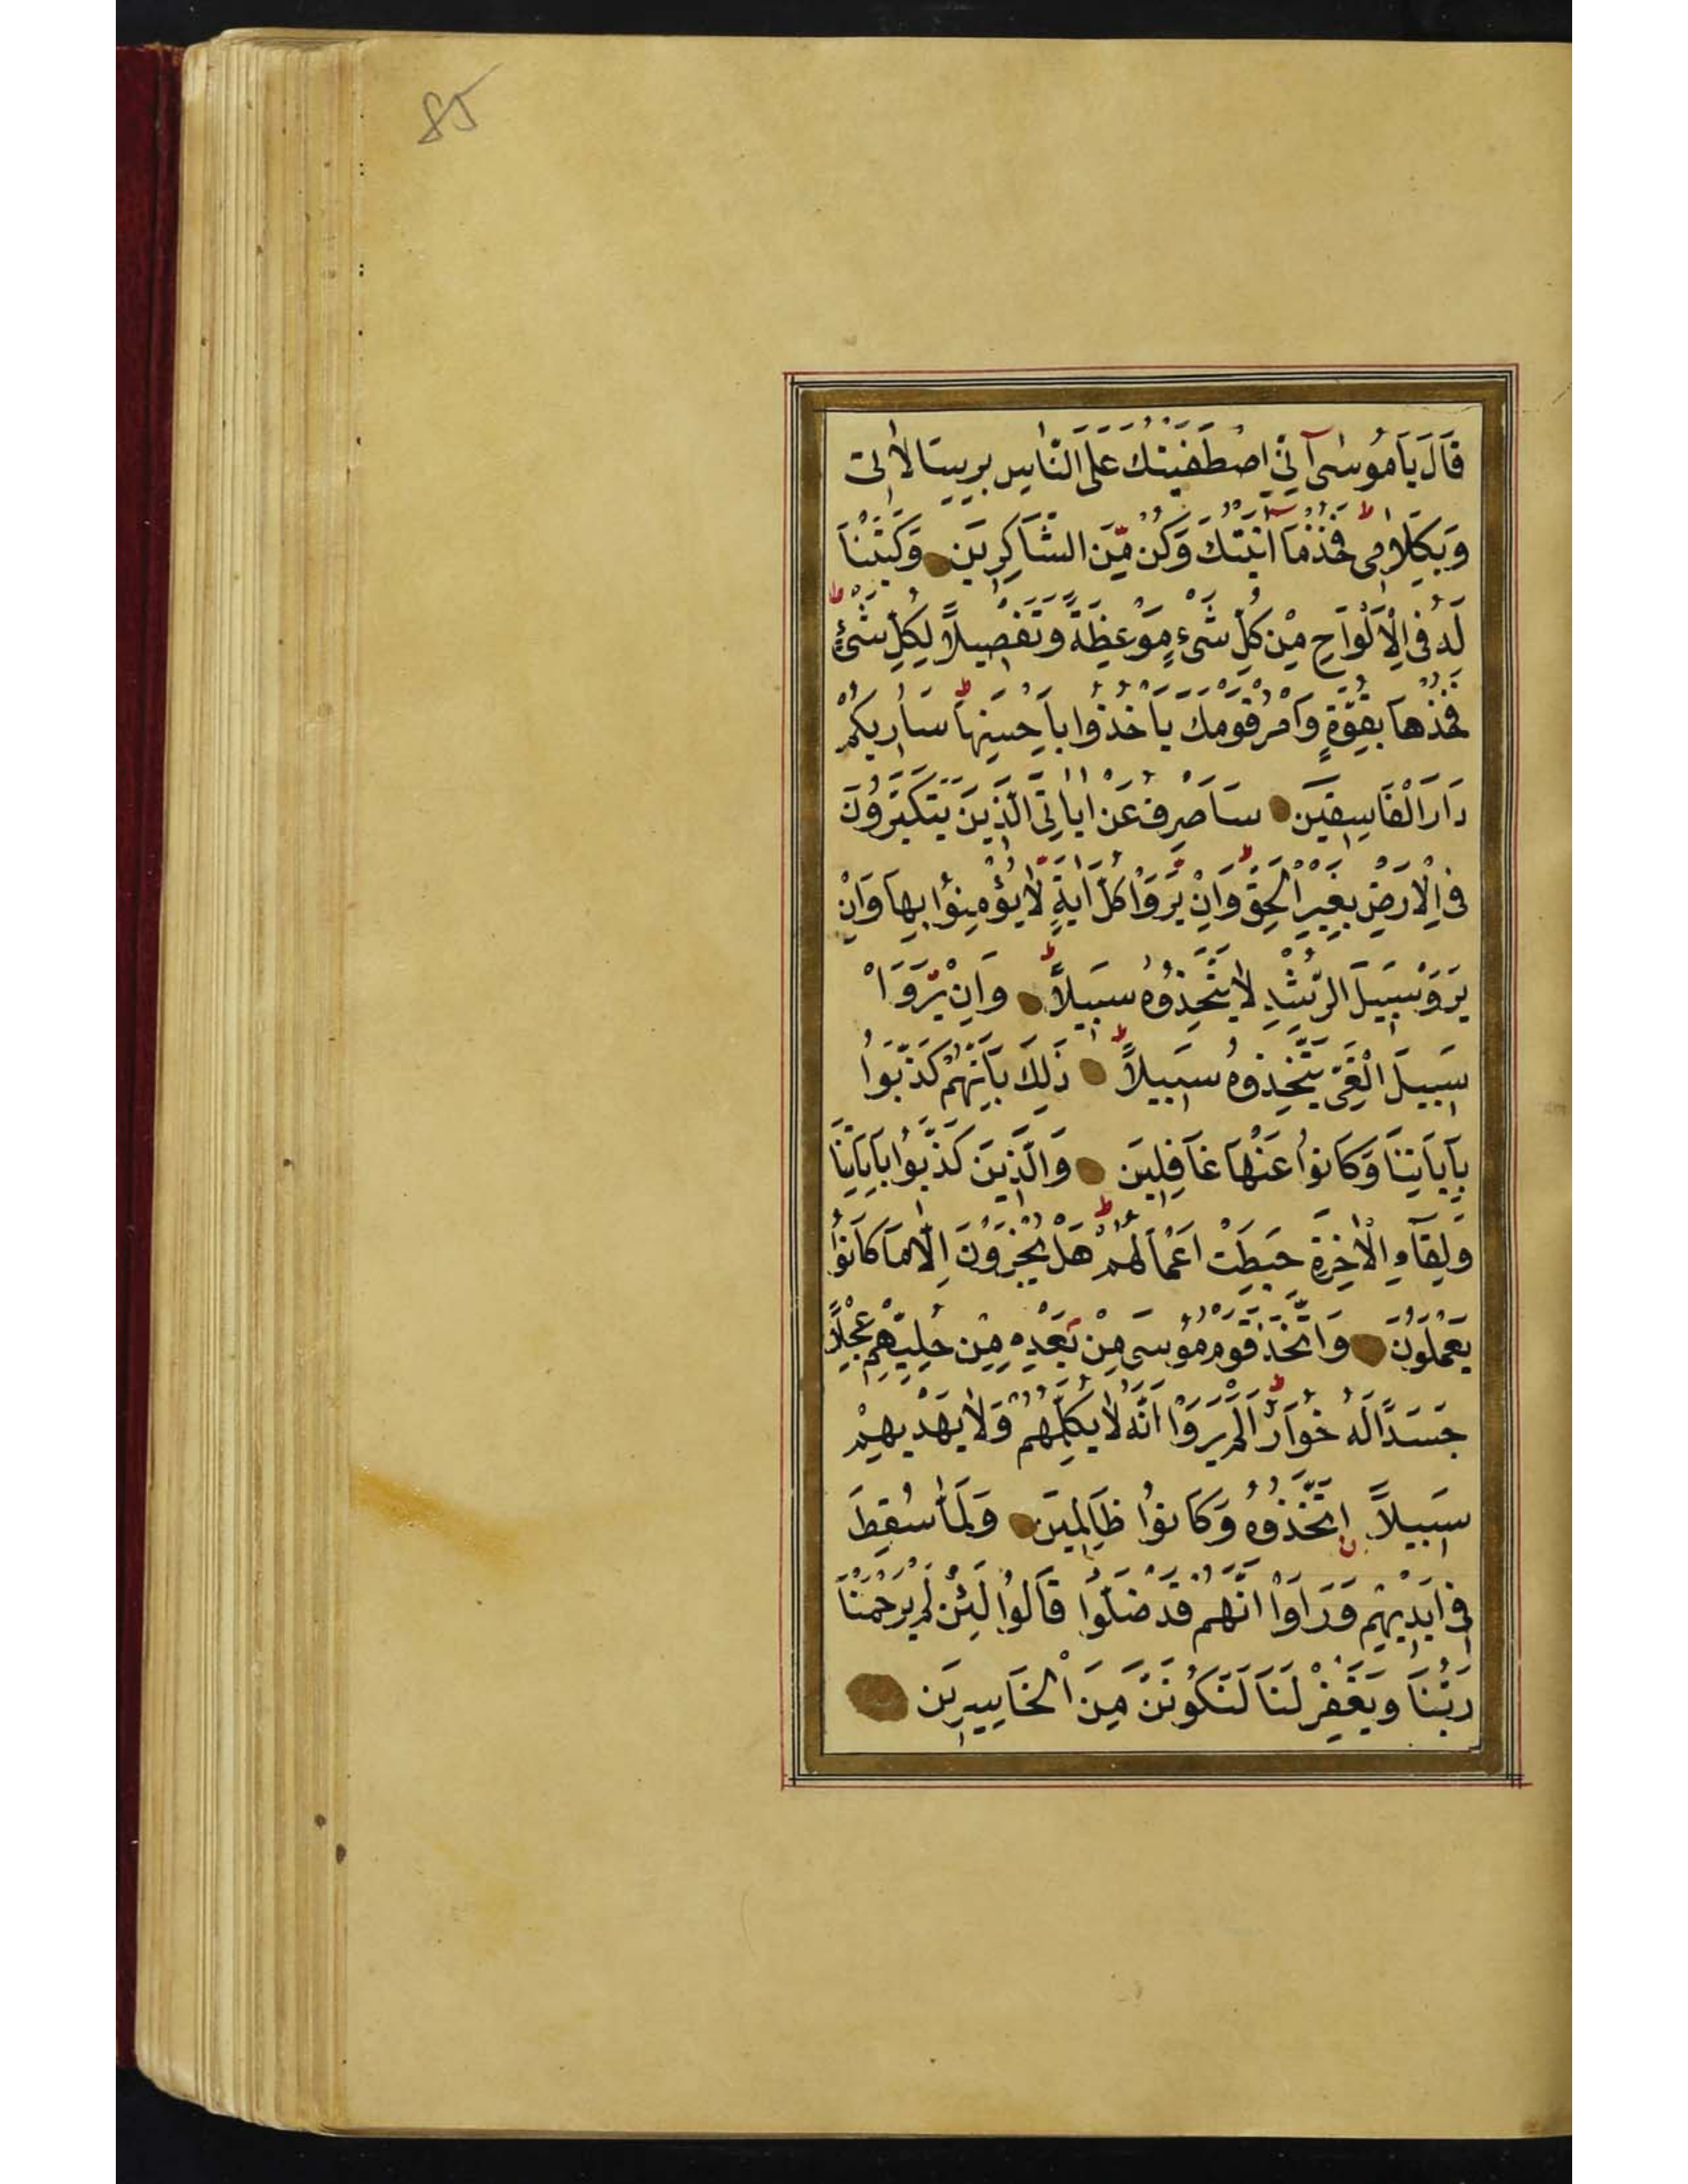 85
قَالَ يَا مُوسٰىٓ اِنِّى اصْطَفَيْتُكَ عَلَى النَّاسِ بِرِسَالَاتِى
وَبِكَلَامِى فَخُذْ مَآ اٰتَيْتُكَ وَكُنْ مِّنَ الشَّاكِرِينَ وَكَتَبْنَا
لَهُ فِى الْاَلْوَاحِ مِنْ كُلِّ شَىْءٍ مَوْعِظَةً وَتَفْصِيلًا لِكُلِّ شَىْءٍ
فَخُذْهَا بِقُوَّةٍ وَأْمُرْ قَوْمَكَ يَأْخُذُوا بِاَحْسَنِهَا سَاُرِيكُمْ
دَارَ الْفَاسِقِينَ سَاَصْرِفُ عَنْ اٰيَاتِىَ الَّذِينَ يَتَكَبَّرُونَ
فِى الْاَرْضِ بِغَيْرِ الْحَقِّ وَاِنْ يَّرَوْا كُلَّ اٰيَةٍ لَّا يُؤْمِنُوا بِهَا وَاِنْ
يَرَوْ سَبِيلَ الرُّشْدِ لَا يَتَّخِذُوهُ سَبِيلًا وَاِنْ يَّرَوْا
سَبِيلَ الْغَىِّ يَتَّخِذُوهُ سَبِيلًا ذٰلِكَ بِاَنَّهُمْ كَذَّبُوا
بِآيَاتِنَا وَكَانُوا عَنْهَا غَافِلِينَ وَالَّذِينَ كَذَّبُوا بِآيَاتِنَا
وَلِقَآءِ الْاٰخِرَةِ حَبِطَتْ اَعْمَالُهُمْ هَلْ يُجْزَوْنَ اِلَّا مَا كَانُوا
يَعْمَلُونَ وَاتَّخَذَ قَوْمُ مُوسٰى مِنْ بَعْدِهِ مِنْ حُلِيِّهِمْ عِجْلًا
جَسَدًا لَهُ خُوَارٌ اَلَمْ يَرَوْا اَنَّهُ لَا يُكَلِّمُهُمْ وَلَا يَهْدِيهِمْ
سَبِيلًا اِتَّخَذُوهُ وَكَانُوا ظَالِمِينَ وَلَمَّا سُقِطَ
فِى اَيْدِيهِمْ وَرَاَوْا اَنَّهُمْ قَدْ ضَلُّوا قَالُوا لَئِنْ لَمْ يَرْحَمْنَا
رَبُّنَا وَيَغْفِرْ لَنَا لَنَكُونَنَّ مِنَ الْخَاسِرِينَ